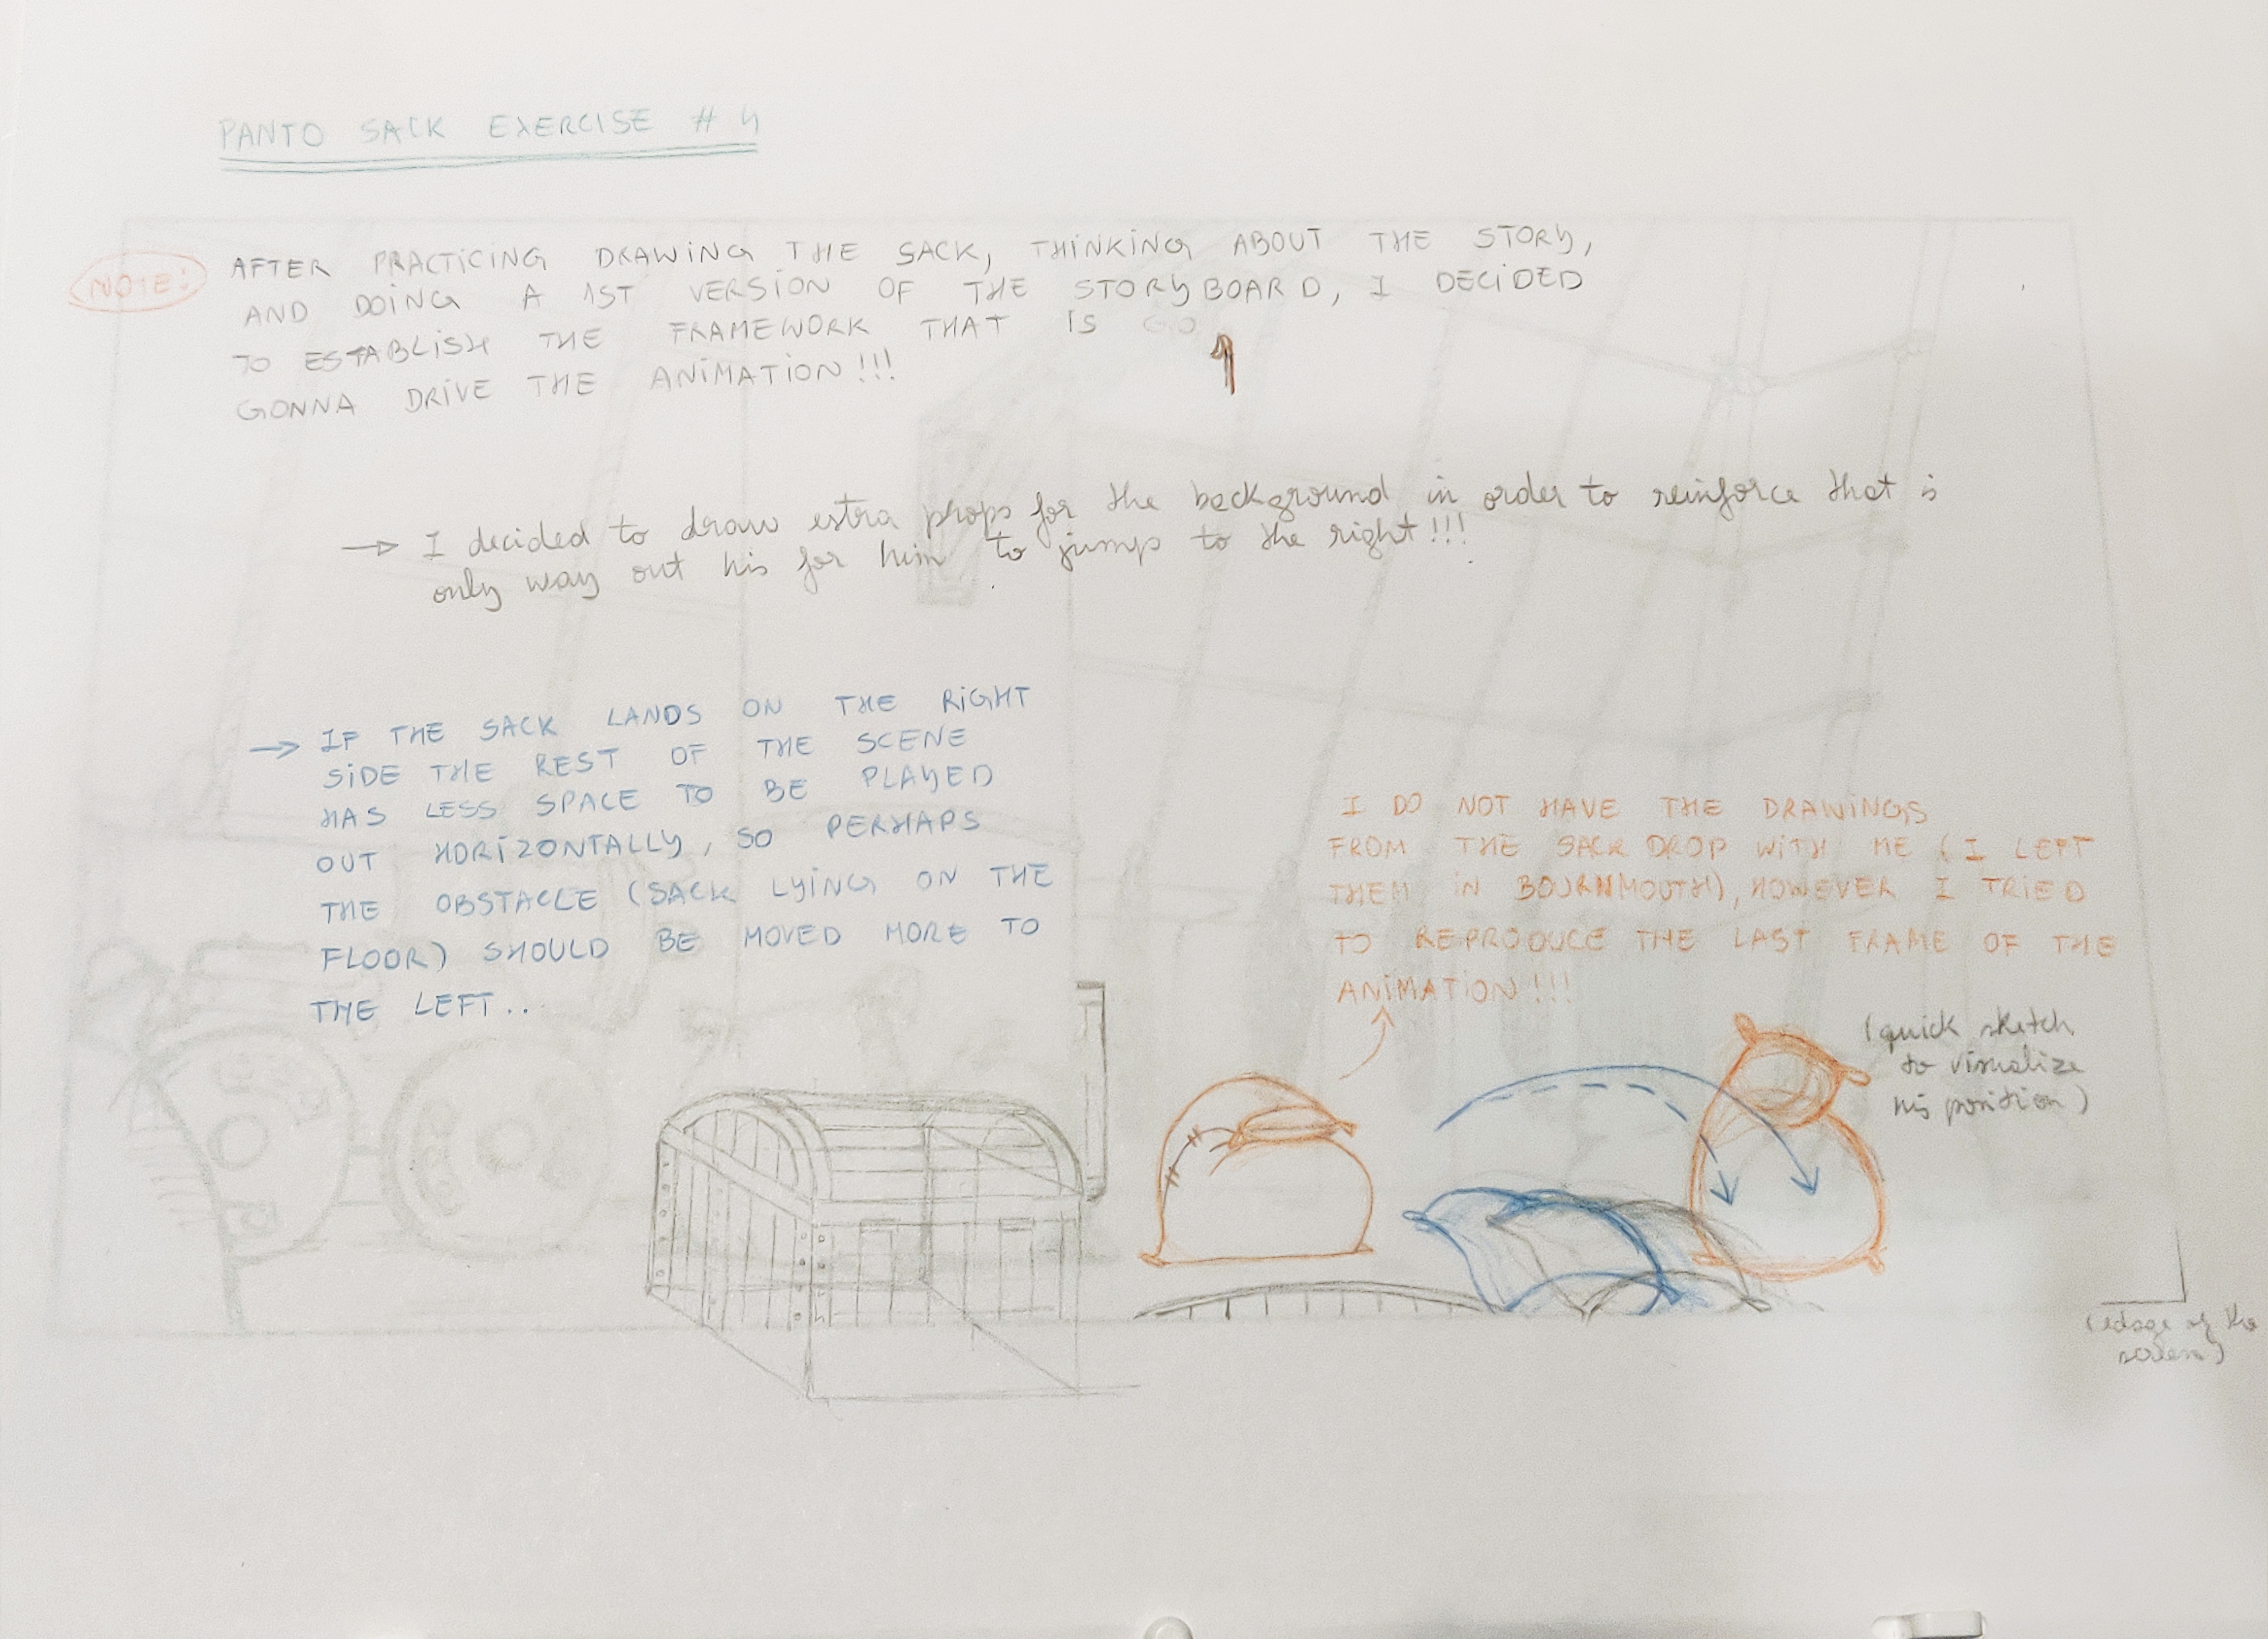 PANTO SACK EXERCISE # 4
NOTE:
AFTER PRACTICING DRAWING THE SACK, THINKING ABOUT THE STORY,
AND DOING A 1ST VERSION OF THE STORYBOARD, I DECIDED
TO ESTABLISH THE FRAMEWORK THAT IS GO
GONNA DRIVE THE ANIMATION!!!
→ I decided to draw estra props for the background in order to reinforce that is
only way out his for him to jump to the right!!!
→ IF THE SACK LANDS ON THE RIGHT
SIDE THE REST OF THE SCENE
HAS LESS SPACE TO BE PLAYED
OUT HORIZONTALLY, SO PERHAPS
THE OBSTACLE (SACK LYING ON THE
FLOOR) SHOULD BE MOVED MORE TO
THE LEFT..
I DO NOT HAVE THE DRAWINGS
FROM THE SACK DROP WITH ME (I LEFT
THEM IN BOURNMOUTH), HOWEVER I TRIED
TO REPRODUCE THE LAST FRAME OF THE
ANIMATION!!!
(quick sketch
to visualize
his position)
(edge of the
screen)